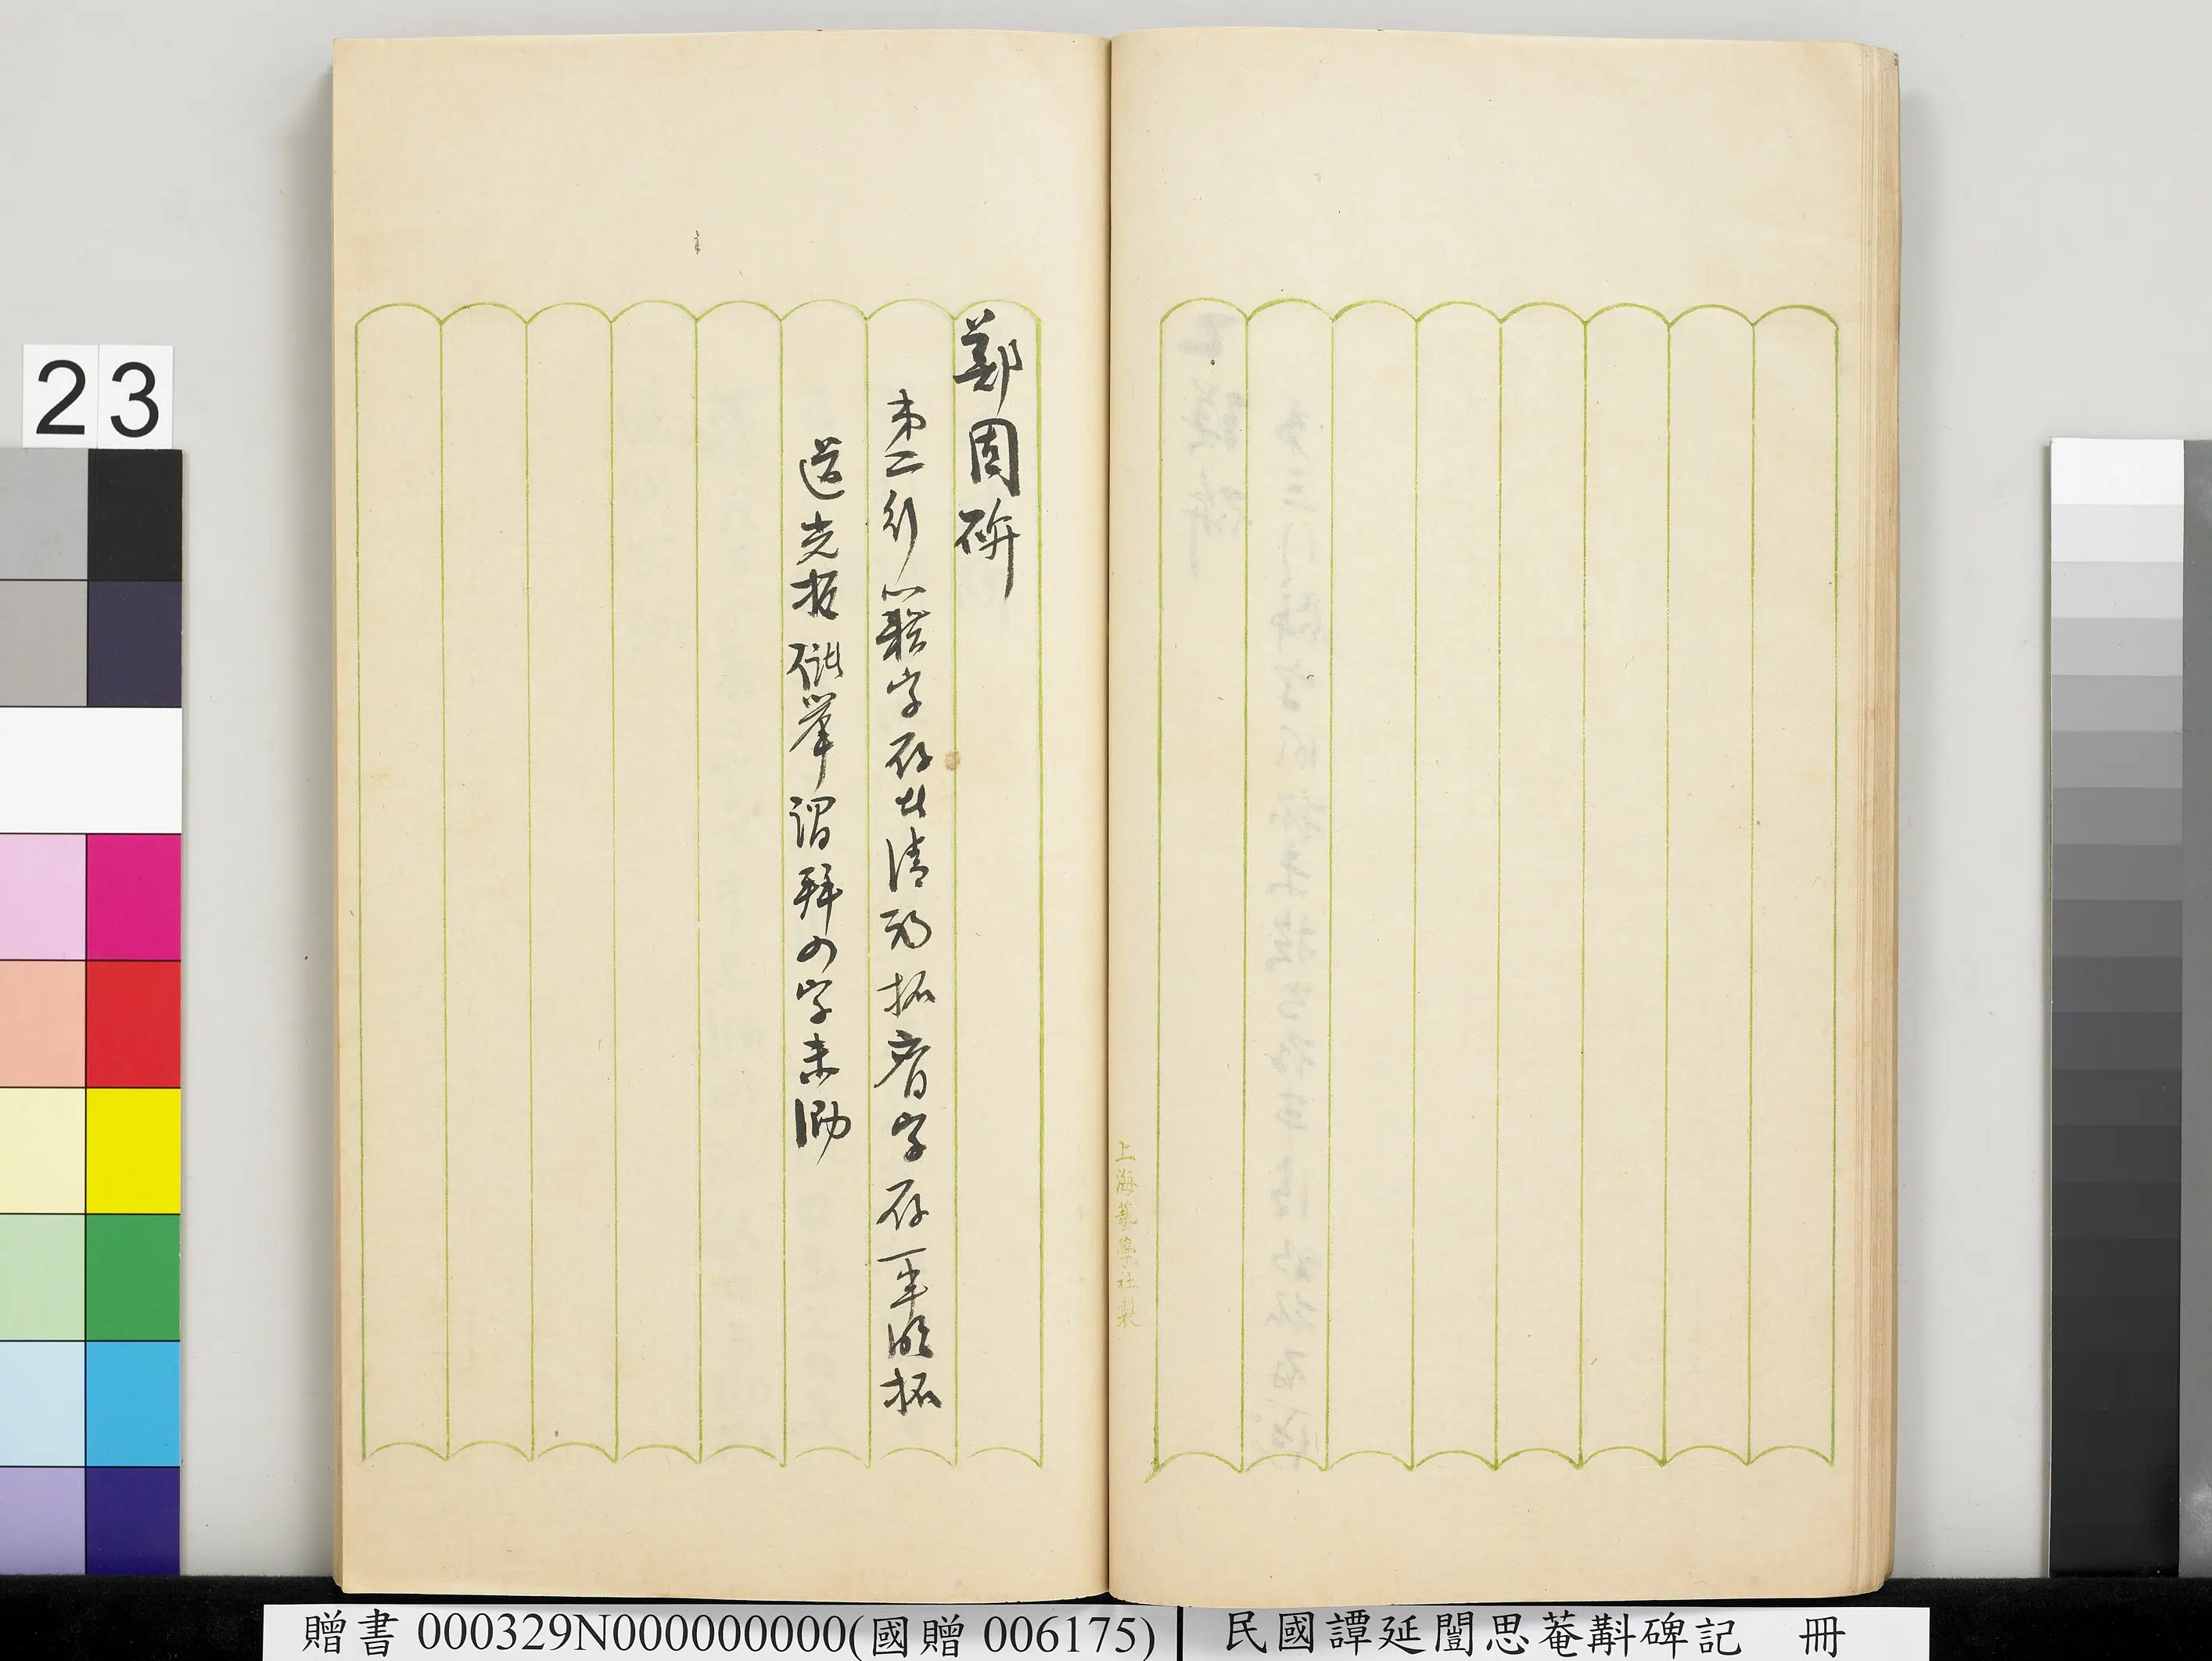 上海藝學社製
鄭固碑
弟二行籍字存者清初拓字存一半明拓
道光拓舉謂拜四字未泐
23
贈書 000329N000000000(國贈 006175)
民國譚延闓思菴斠碑記 冊